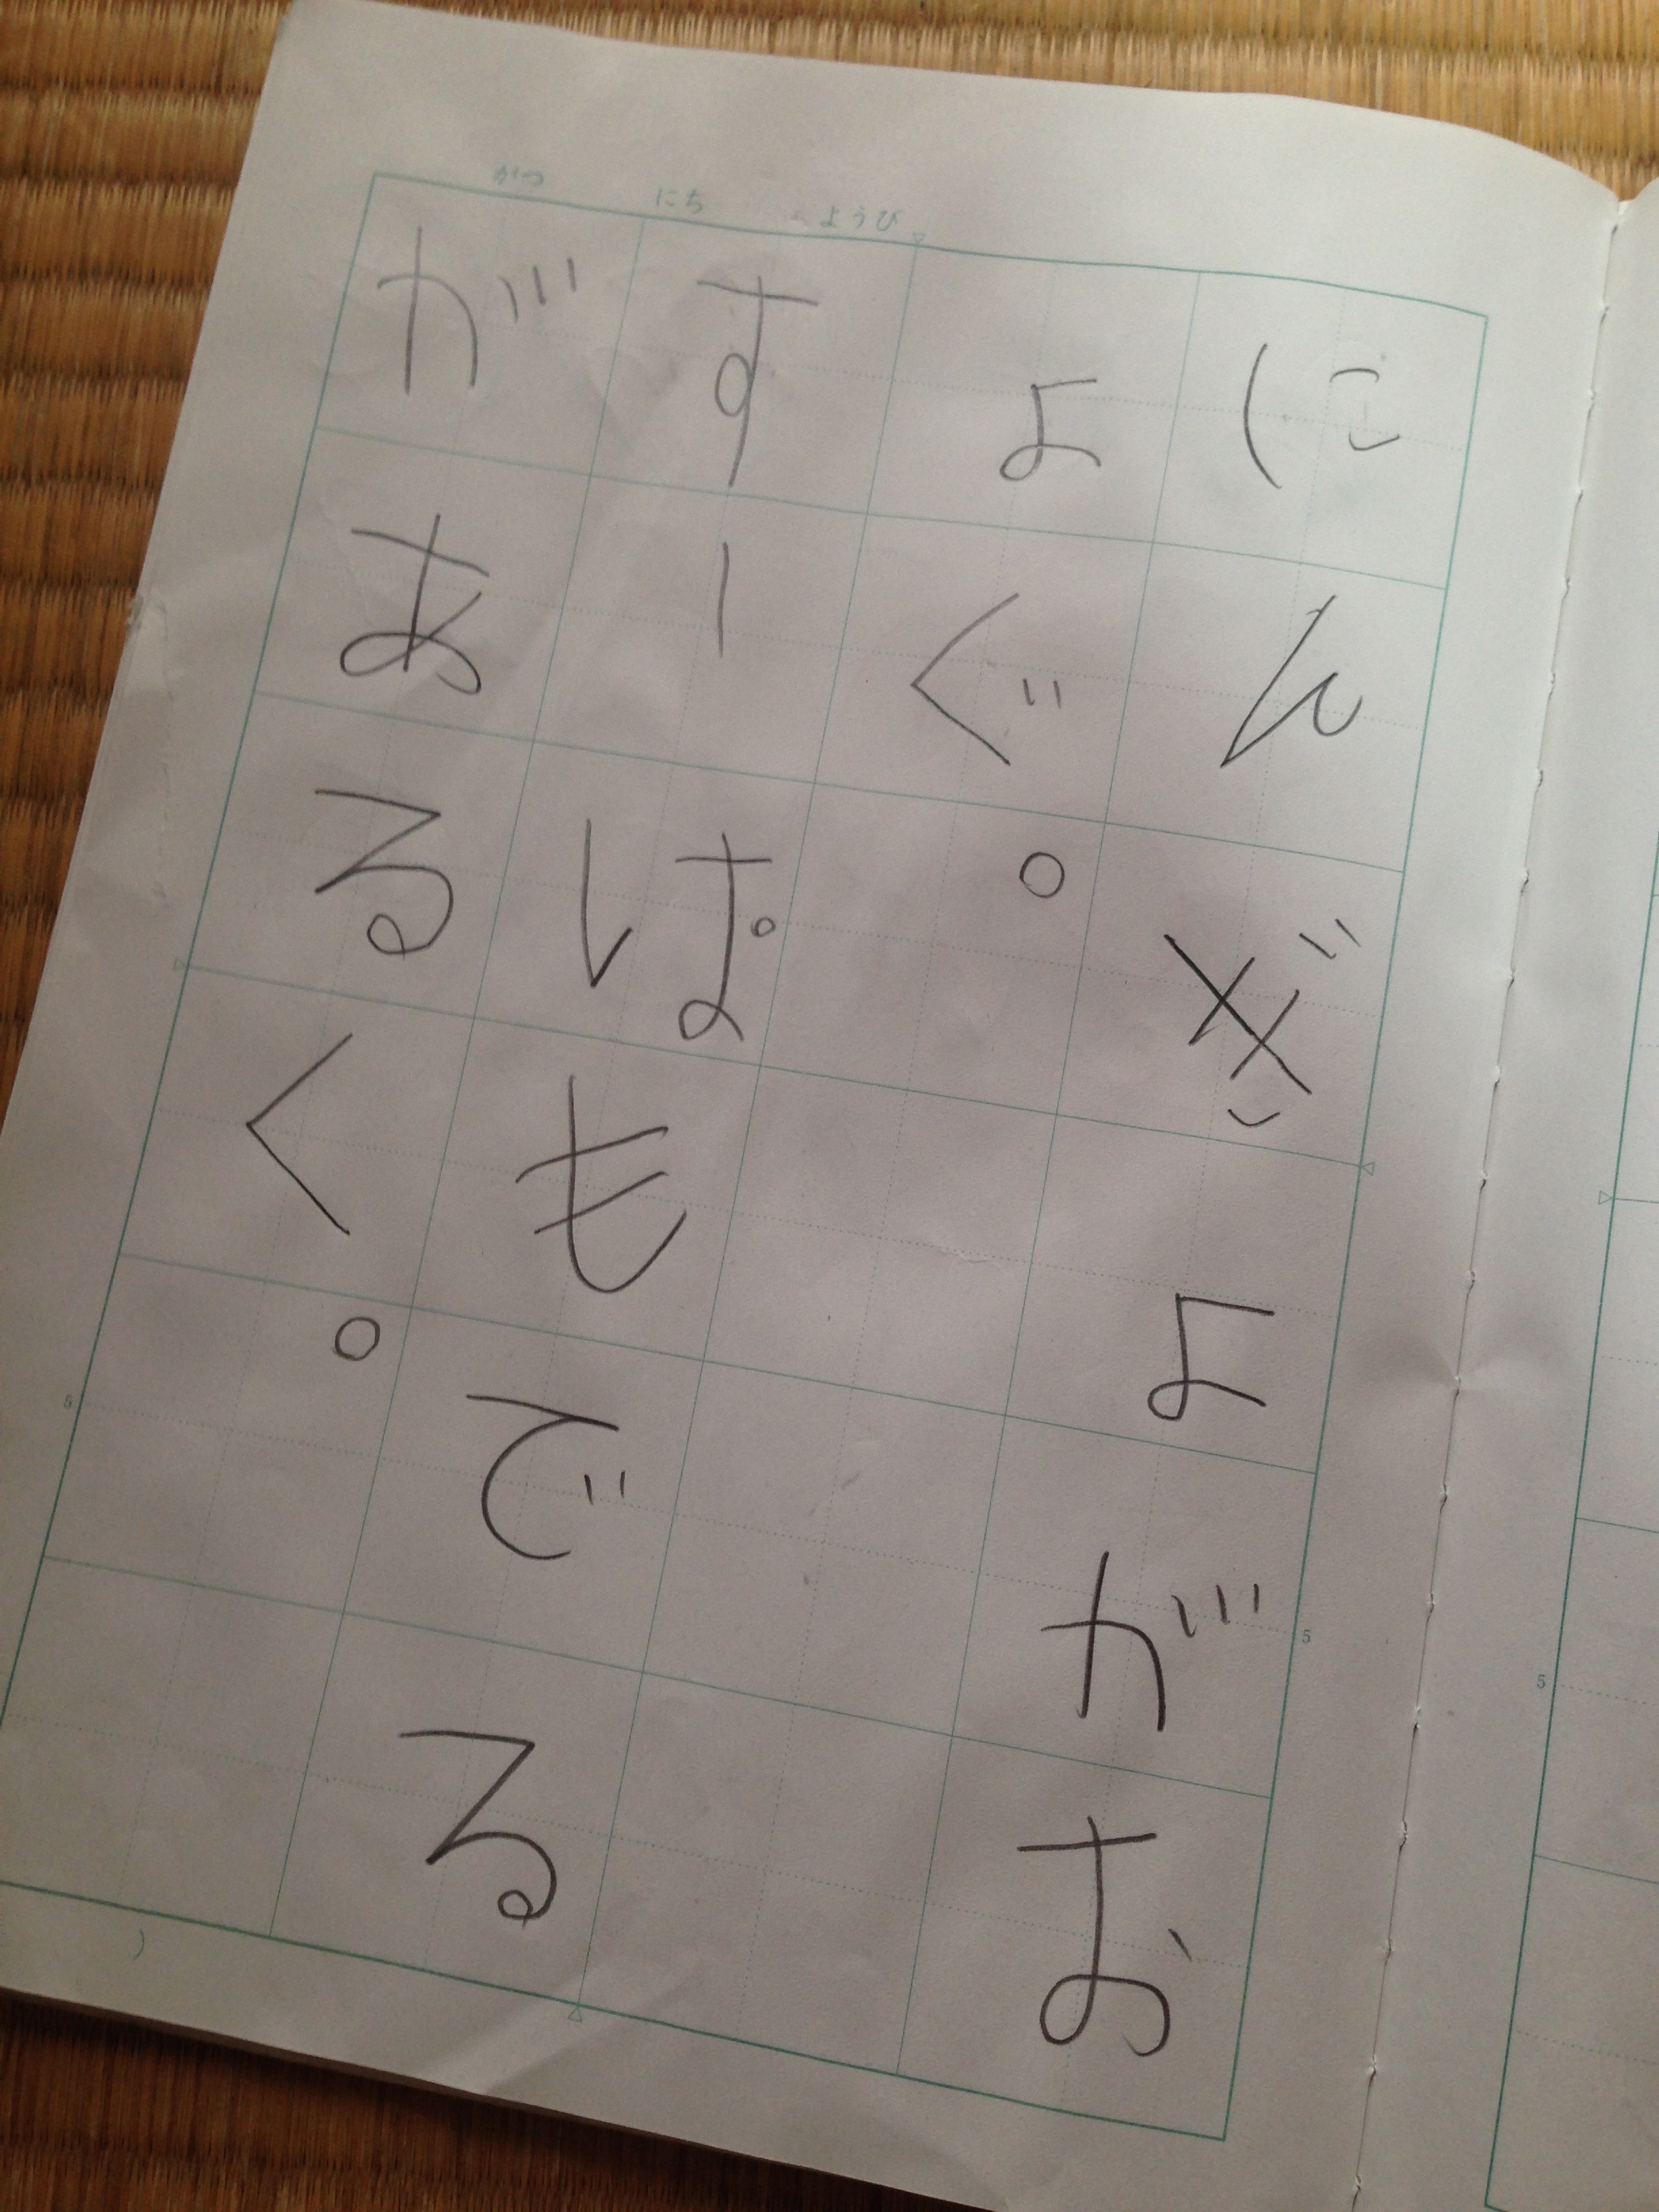 がつ にち ようび
にんぎよがお
よぐ。
すーぱもでる
があるく。
5
5
5